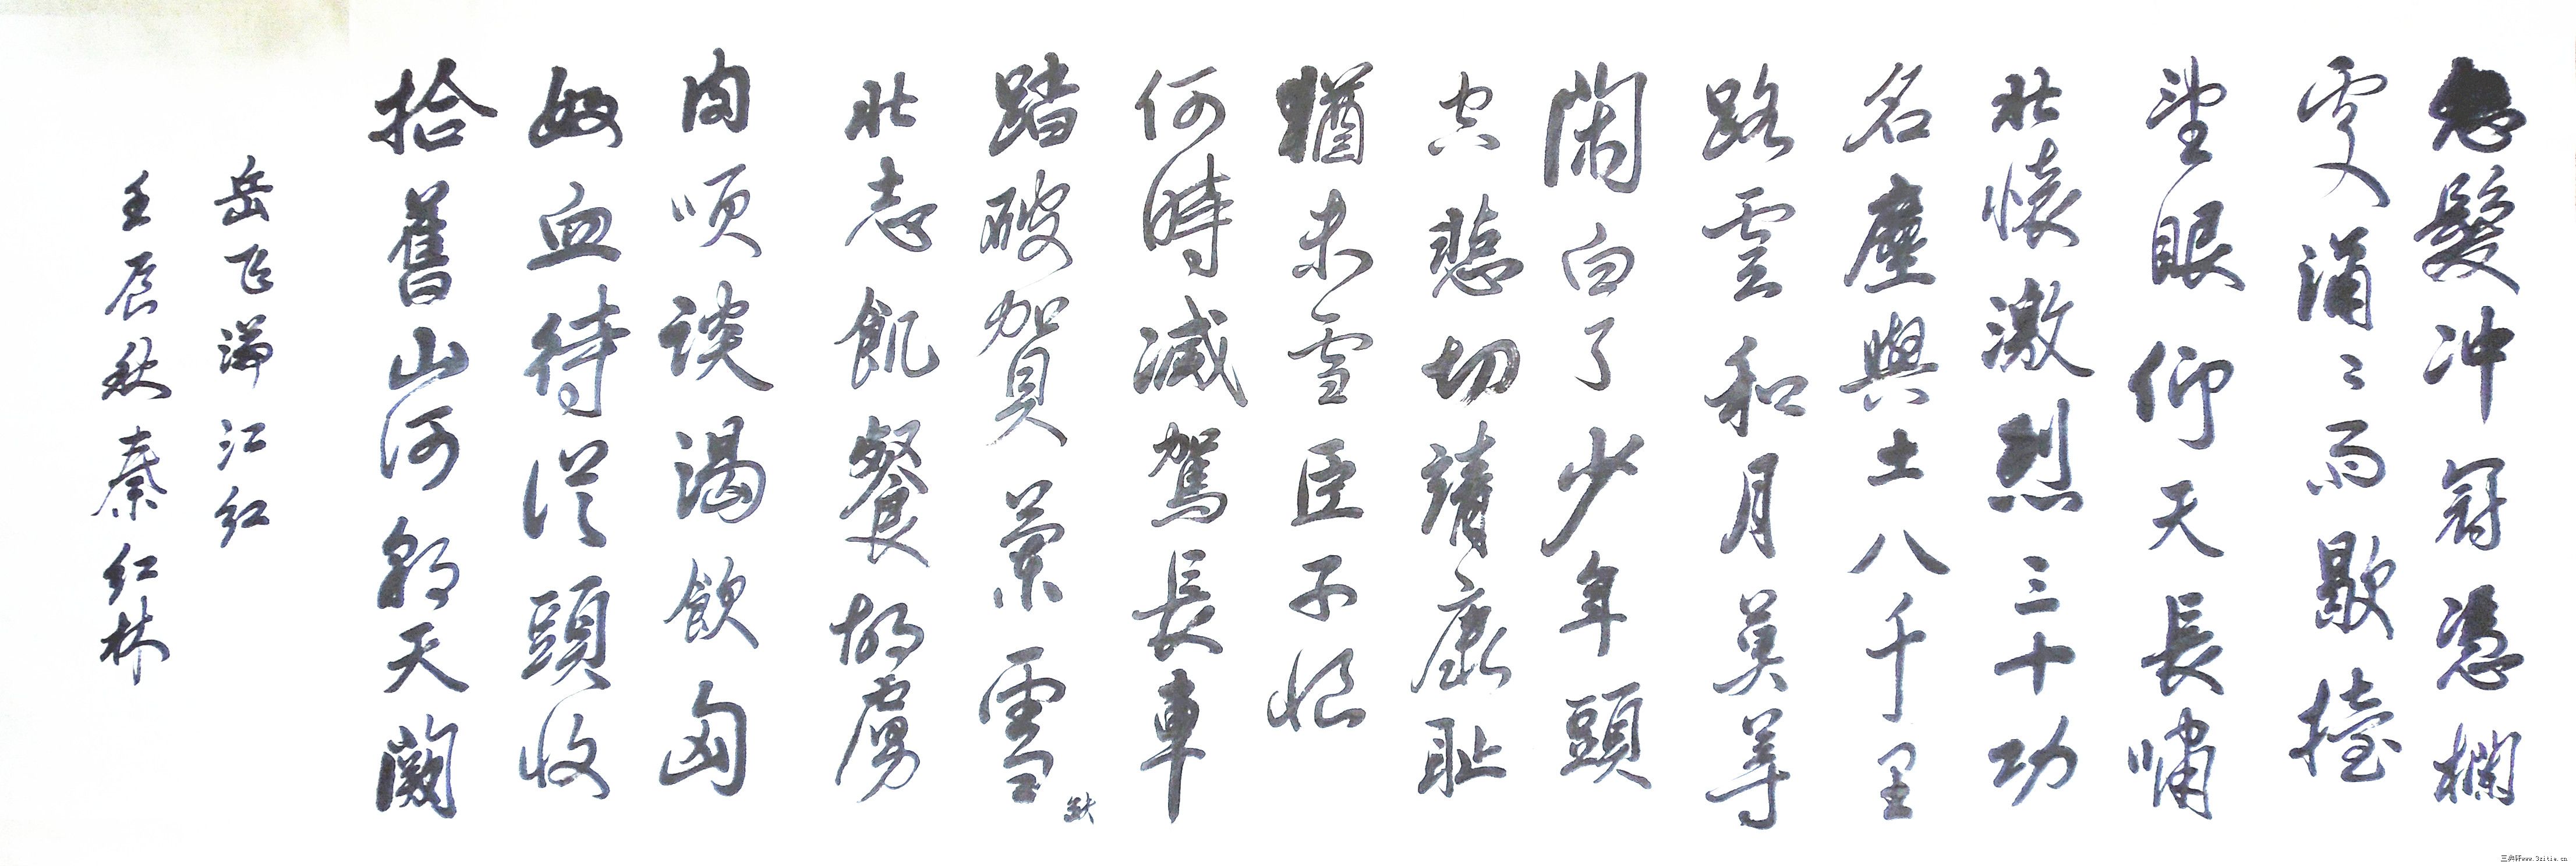 怒髮冲冠憑欄
處瀟〻雨歇擡
望眼仰天長嘯
壯懷激烈三十功
名塵與土八千里
路雲和月莫等
閑白了少年頭
空悲切靖康耻
猶未雪臣子恨
何時減駕長車
踏破賀蘭雪缺
壯志飢餐胡虜
肉咲談渴飲匈
奴血待從頭收
拾舊山河朝天闕
岳飞满江红
壬辰秋秦红林
www.3zitie.cn